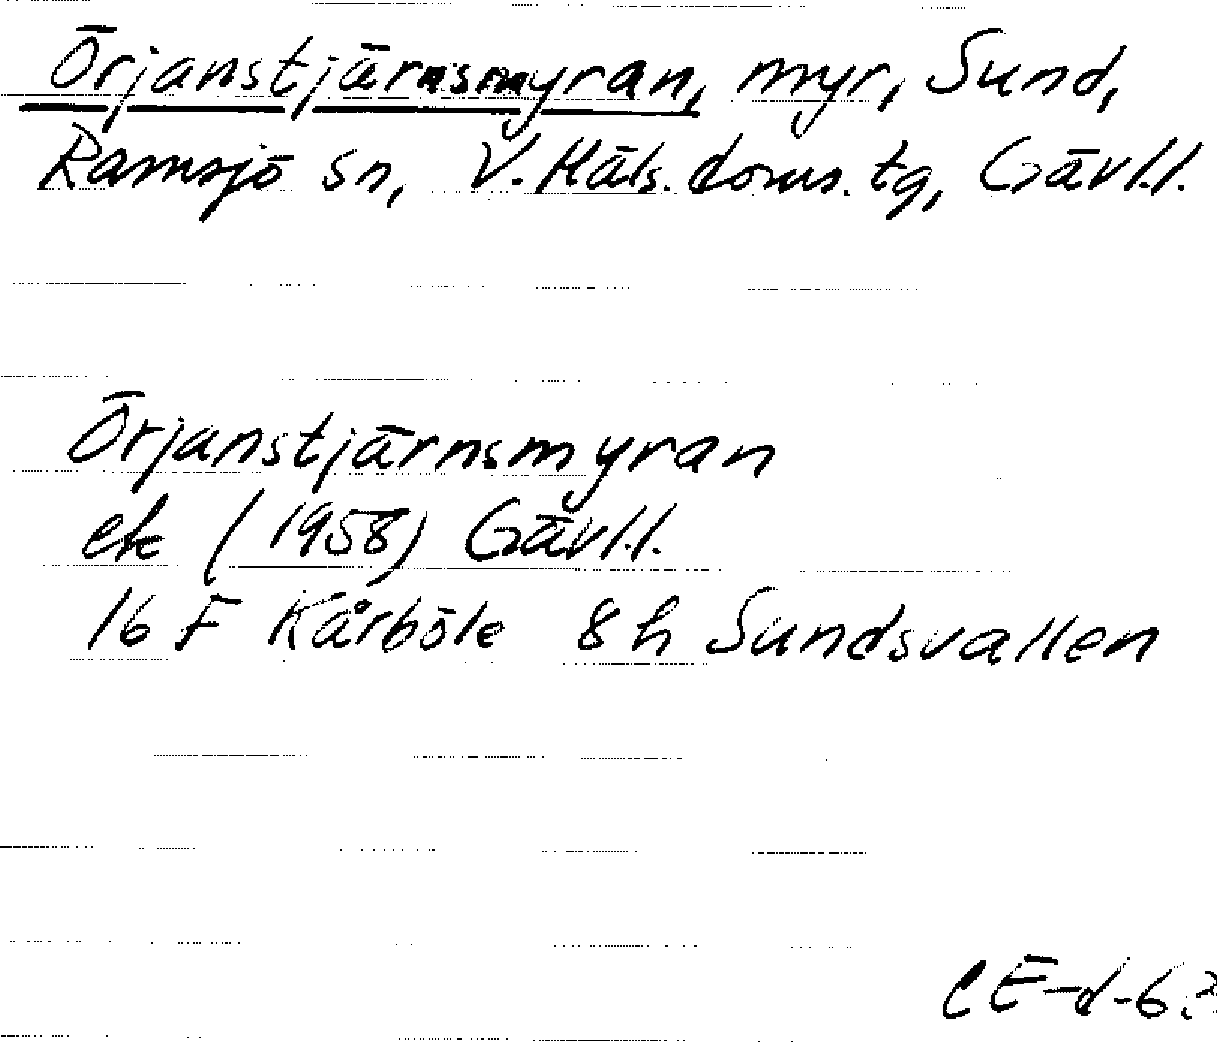 Örjanstjärnsmyran, myr, Sund,
Ramsjö sn, V. Häls. doms. tg, Gävl.l.
Örjanstjärnsmyran
ek (1958) Gävl.l.
16 F Kårböle 8h Sundsvallen